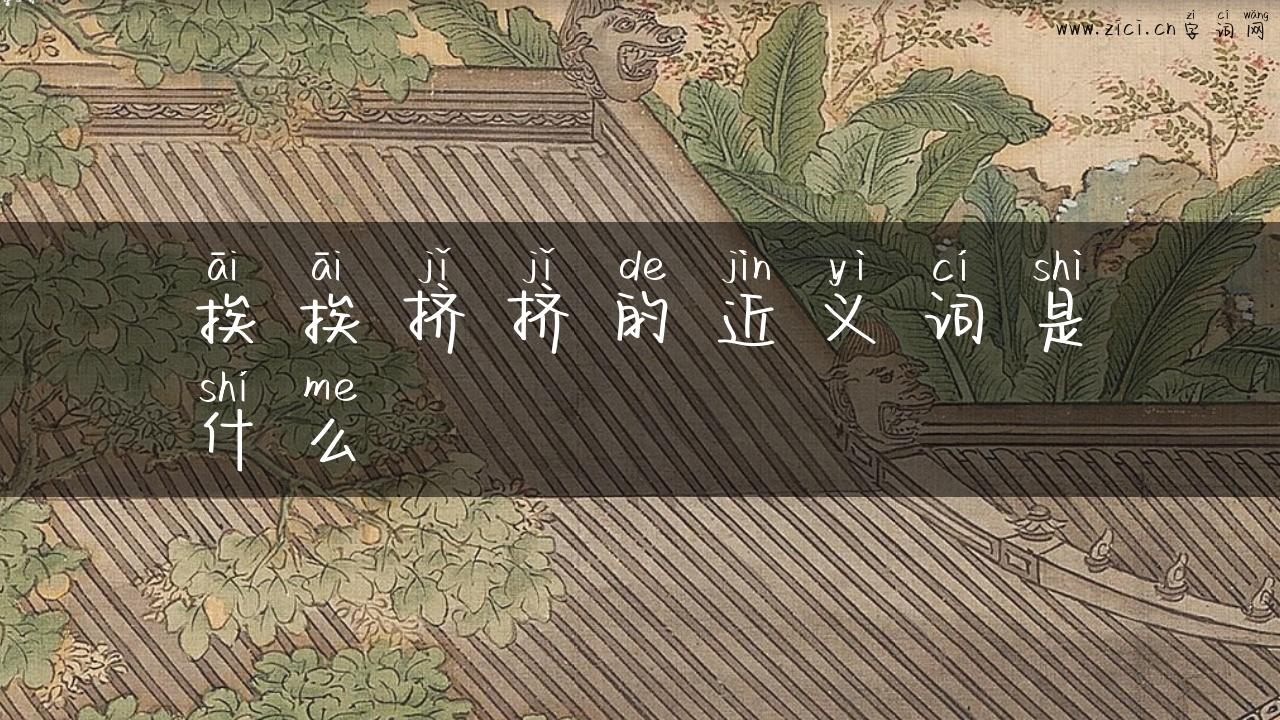 zì cí wǎng
www.zici.cn 字 词 网
āi āi jǐ jǐ de jìn yì cí shì
挨 挨 挤 挤 的 近 义 词 是
shí me
什 么